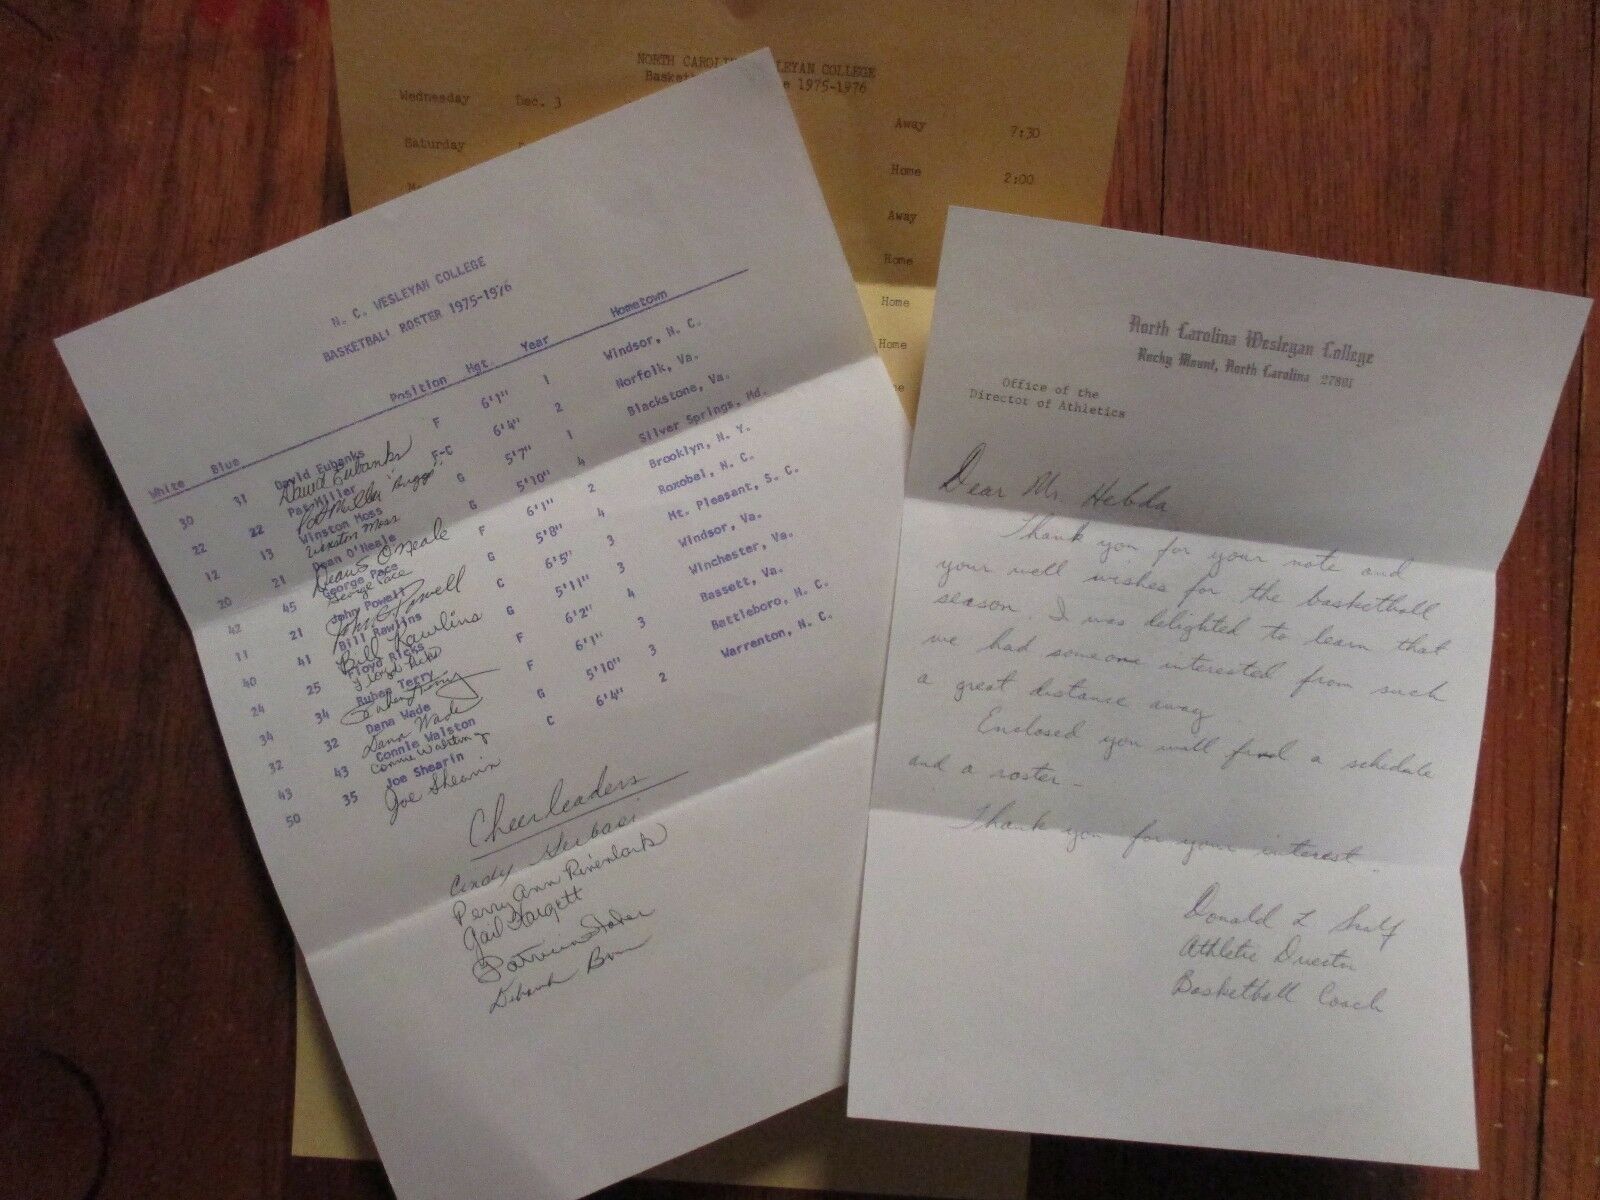 NORTH CAROLI
LEYAN COLLEGE
Baske
e 1975-1976
Wednesday Dec. 3 Away 7:30
Saturday Home 2:00
Away
Home
Home
Home
N. C. WESLEYAN COLLEGE
BASKETBALL ROSTER 1975-1976
White Blue Position Hgt. Year Hometown
30 31 David Eubanks F 6'1" 1 Windsor, N. C.
David Eubanks
22 22 Pat Miller F-C 6'4" 2 Norfolk, Va.
Pat Miller
12 13 Winston Moss G 5'7" 1 Blackstone, Va.
Winston Moss
20 21 Dean O'Neale G 5'10" 4 Silver Springs, Md.
Dean S O'Neale
42 45 George Pace F 6'1" 2 Brooklyn, N. Y.
George Pace
11 21 John Powell G 5'8" 4 Roxobel, N. C.
John G Powell
40 41 Bill Rawlins C 6'5" 3 Mt. Pleasant, S. C.
Bill Rawlins
24 25 Floyd Ricks G 5'11" 3 Windsor, Va.
Floyd Ricks
34 34 Ruben Terry F 6'2" 4 Winchester, Va.
32 32 Dana Wade F 6'1" 3 Bassett, Va.
Dana Wade
43 43 Connie Walston G 5'10" 3 Battleboro, N. C.
Connie Walston
50 35 Joe Shearin C 6'4" 2 Warrenton, N. C.
Joe Shearin
Cheerleaders
Cindy
Perry Ann Rivenbark
Gail Hargett
Deborah
North Carolina Wesleyan College
Rocky Mount, North Carolina 27801
Office of the
Director of Athletics
Dear Mr. Hebda
Thank you for your note and
your well wishes for the basketball
season. I was delighted to learn that
we had someone interested from such
a great distance away
Enclosed you will find a schedule
and a roster -
Thank you for your interest.
Donald L
Athletic Director
Basketball Coach